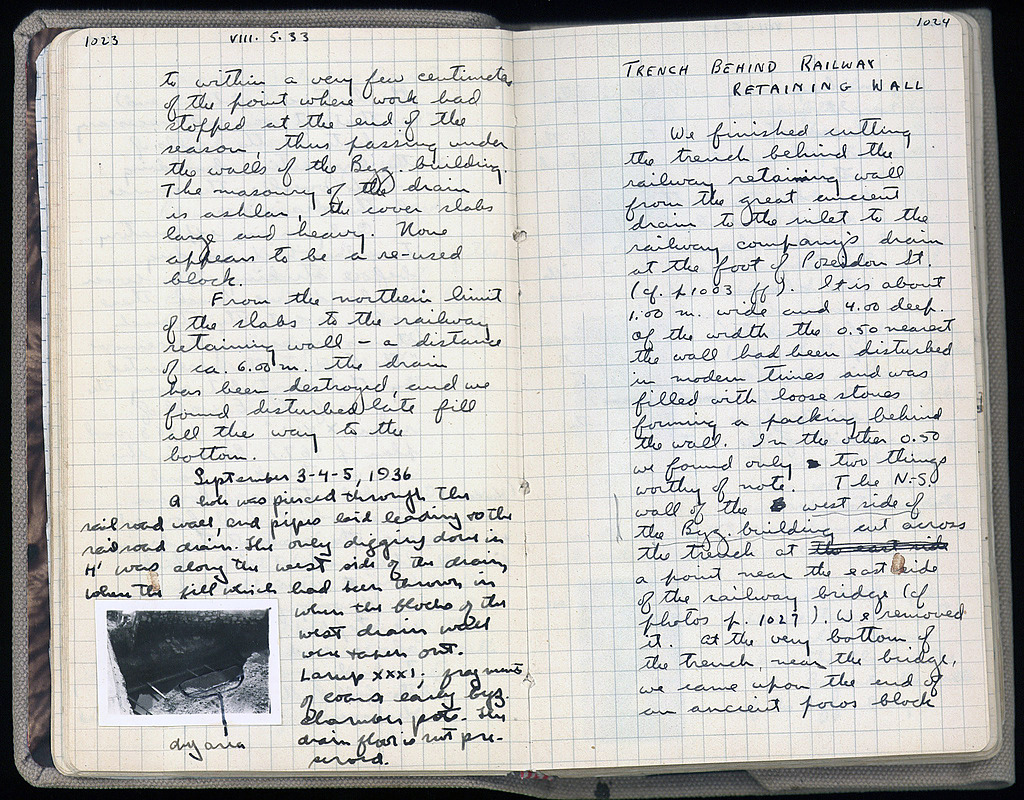 1023
VIII. 5.33
to within a very few centimeters
of the point where work had
stopped at the end of the
season, thus passing under
the walls of the Byz. building.
The masonry of the drain
is ashlar, the cover slabs
large and heavy. None
appears to be a re-used
block.
From the northern limit
of the slabs to the railway
retaining wall – a distance
of ca. 6.00 m. the drain
has been destroyed, and we
found disturbed late fill
all the way to the
bottom.
September 3-4-5, 1936
A hole was pierced through the
railroad wall, and pipes laid leading to the
railroad drain. The only digging done in
H' was along the west side of the drain,
where the fill which had been thrown in
when the blocks of the
west drain wall
were taken out.
Lamp XXXI; fragments
of coarse early Byz.
chamber pots. The
drain floor is not pre-
served.
dug area
1024
TRENCH BEHIND RAILWAY
RETAINING WALL
We finished cutting
the trench behind the
railway retaining wall
from the great ancient
drain to the inlet to the
railway company's drain
at the foot of Poseidon St.
(cf. p. 1003 ff). It is about
1.00 m. wide and 4.00 deep.
Of the width the 0.50 nearest
the wall had been disturbed
in modern times and was
filled with loose stones
forming a packing behind
the wall. In the other 0.50
we found only two things
worthy of note. The N-S
wall of the west side of
the Byz. building cut across
the trench at the east side
a point near the east side
of the railway bridge (cf
photos p. 1027). We removed
it. At the very bottom of
the trench, near the bridge,
we came upon the end of
an ancient poros block